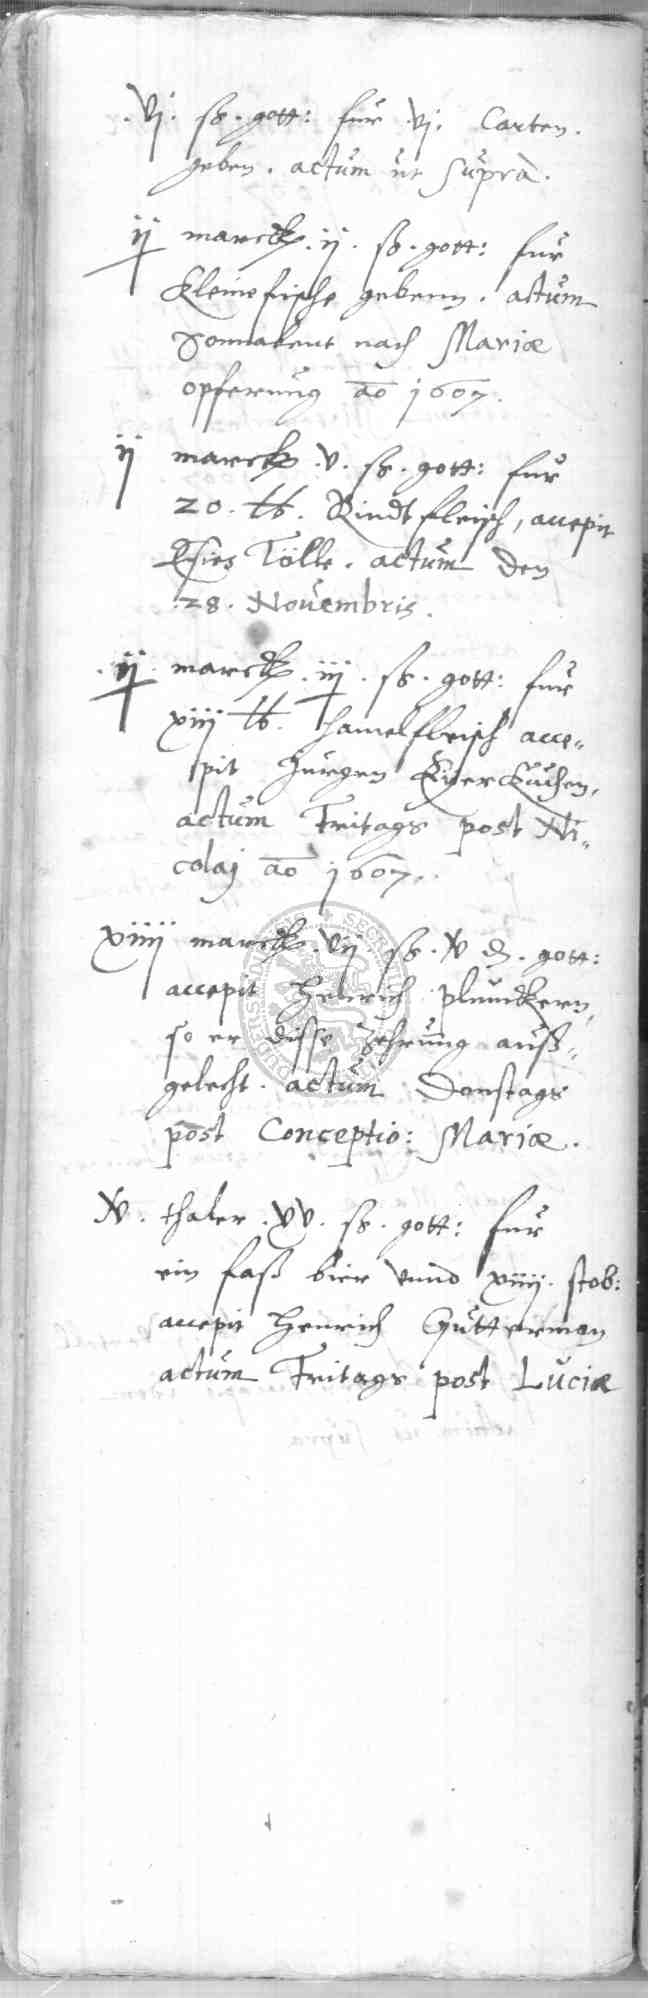 .vj. ß. gott: für vj. Carten.
geben. actum ut supra.
ij marck .ij. ß. gott: für
Kleinefische gebenn. actum
Sonnabent nach Mariæ
opferung ao 1607.
ij marck .v. ß. gott: für
20. lb. Rindtfleisch, accepit
Tölle. actum den
.28. Novembris.
.ij. marck .iij. ß. gott: für
xiij lb. hamelfleisch acce-
pit Jurgen Eyerkuchen,
actum Fritags post Ni-
colaj ao 1607.
xiiij marck .vij ß. v d. gott:
accepit Henrich plunckern,
so er disse Zehrung auß-
gelecht. actum Donstags
post Conceptio: Mariæ.
v. thaler .xv. ß. gott: für
ein faß bier unnd xiiij. stob:
accepit Henrich Gutterman
actum Fritags post Luciæ